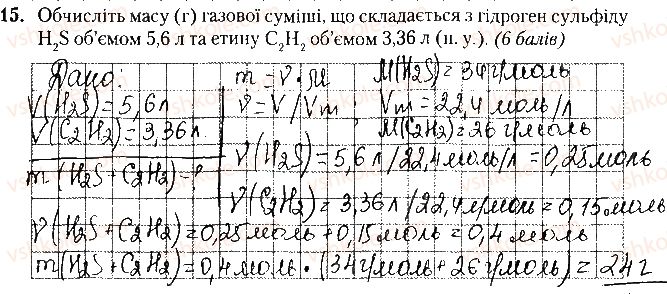 15. Обчисліть масу (г) газової суміші, що складається з гідроген сульфіду
H₂S об’ємом 5,6 л та етину C₂H₂ об’ємом 3,36 л (н. у.). (6 балів)
Дано: m = ν · M M(H₂S) = 34 г/моль
V(H₂S) = 5,6 л ν = V / Vm, Vm = 22,4 моль/л
V(C₂H₂) = 3,36 л M(C₂H₂) = 26 г/моль
m(H₂S + C₂H₂) - ? ν(H₂S) = 5,6 л / 22,4 моль/л = 0,25 моль
ν(C₂H₂) = 3,36 л / 22,4 л/моль = 0,15 моль
ν(H₂S + C₂H₂) = 0,25 моль + 0,15 моль = 0,4 моль
m(H₂S + C₂H₂) = 0,4 моль · (34 г/моль + 26 г/моль) = 24 г